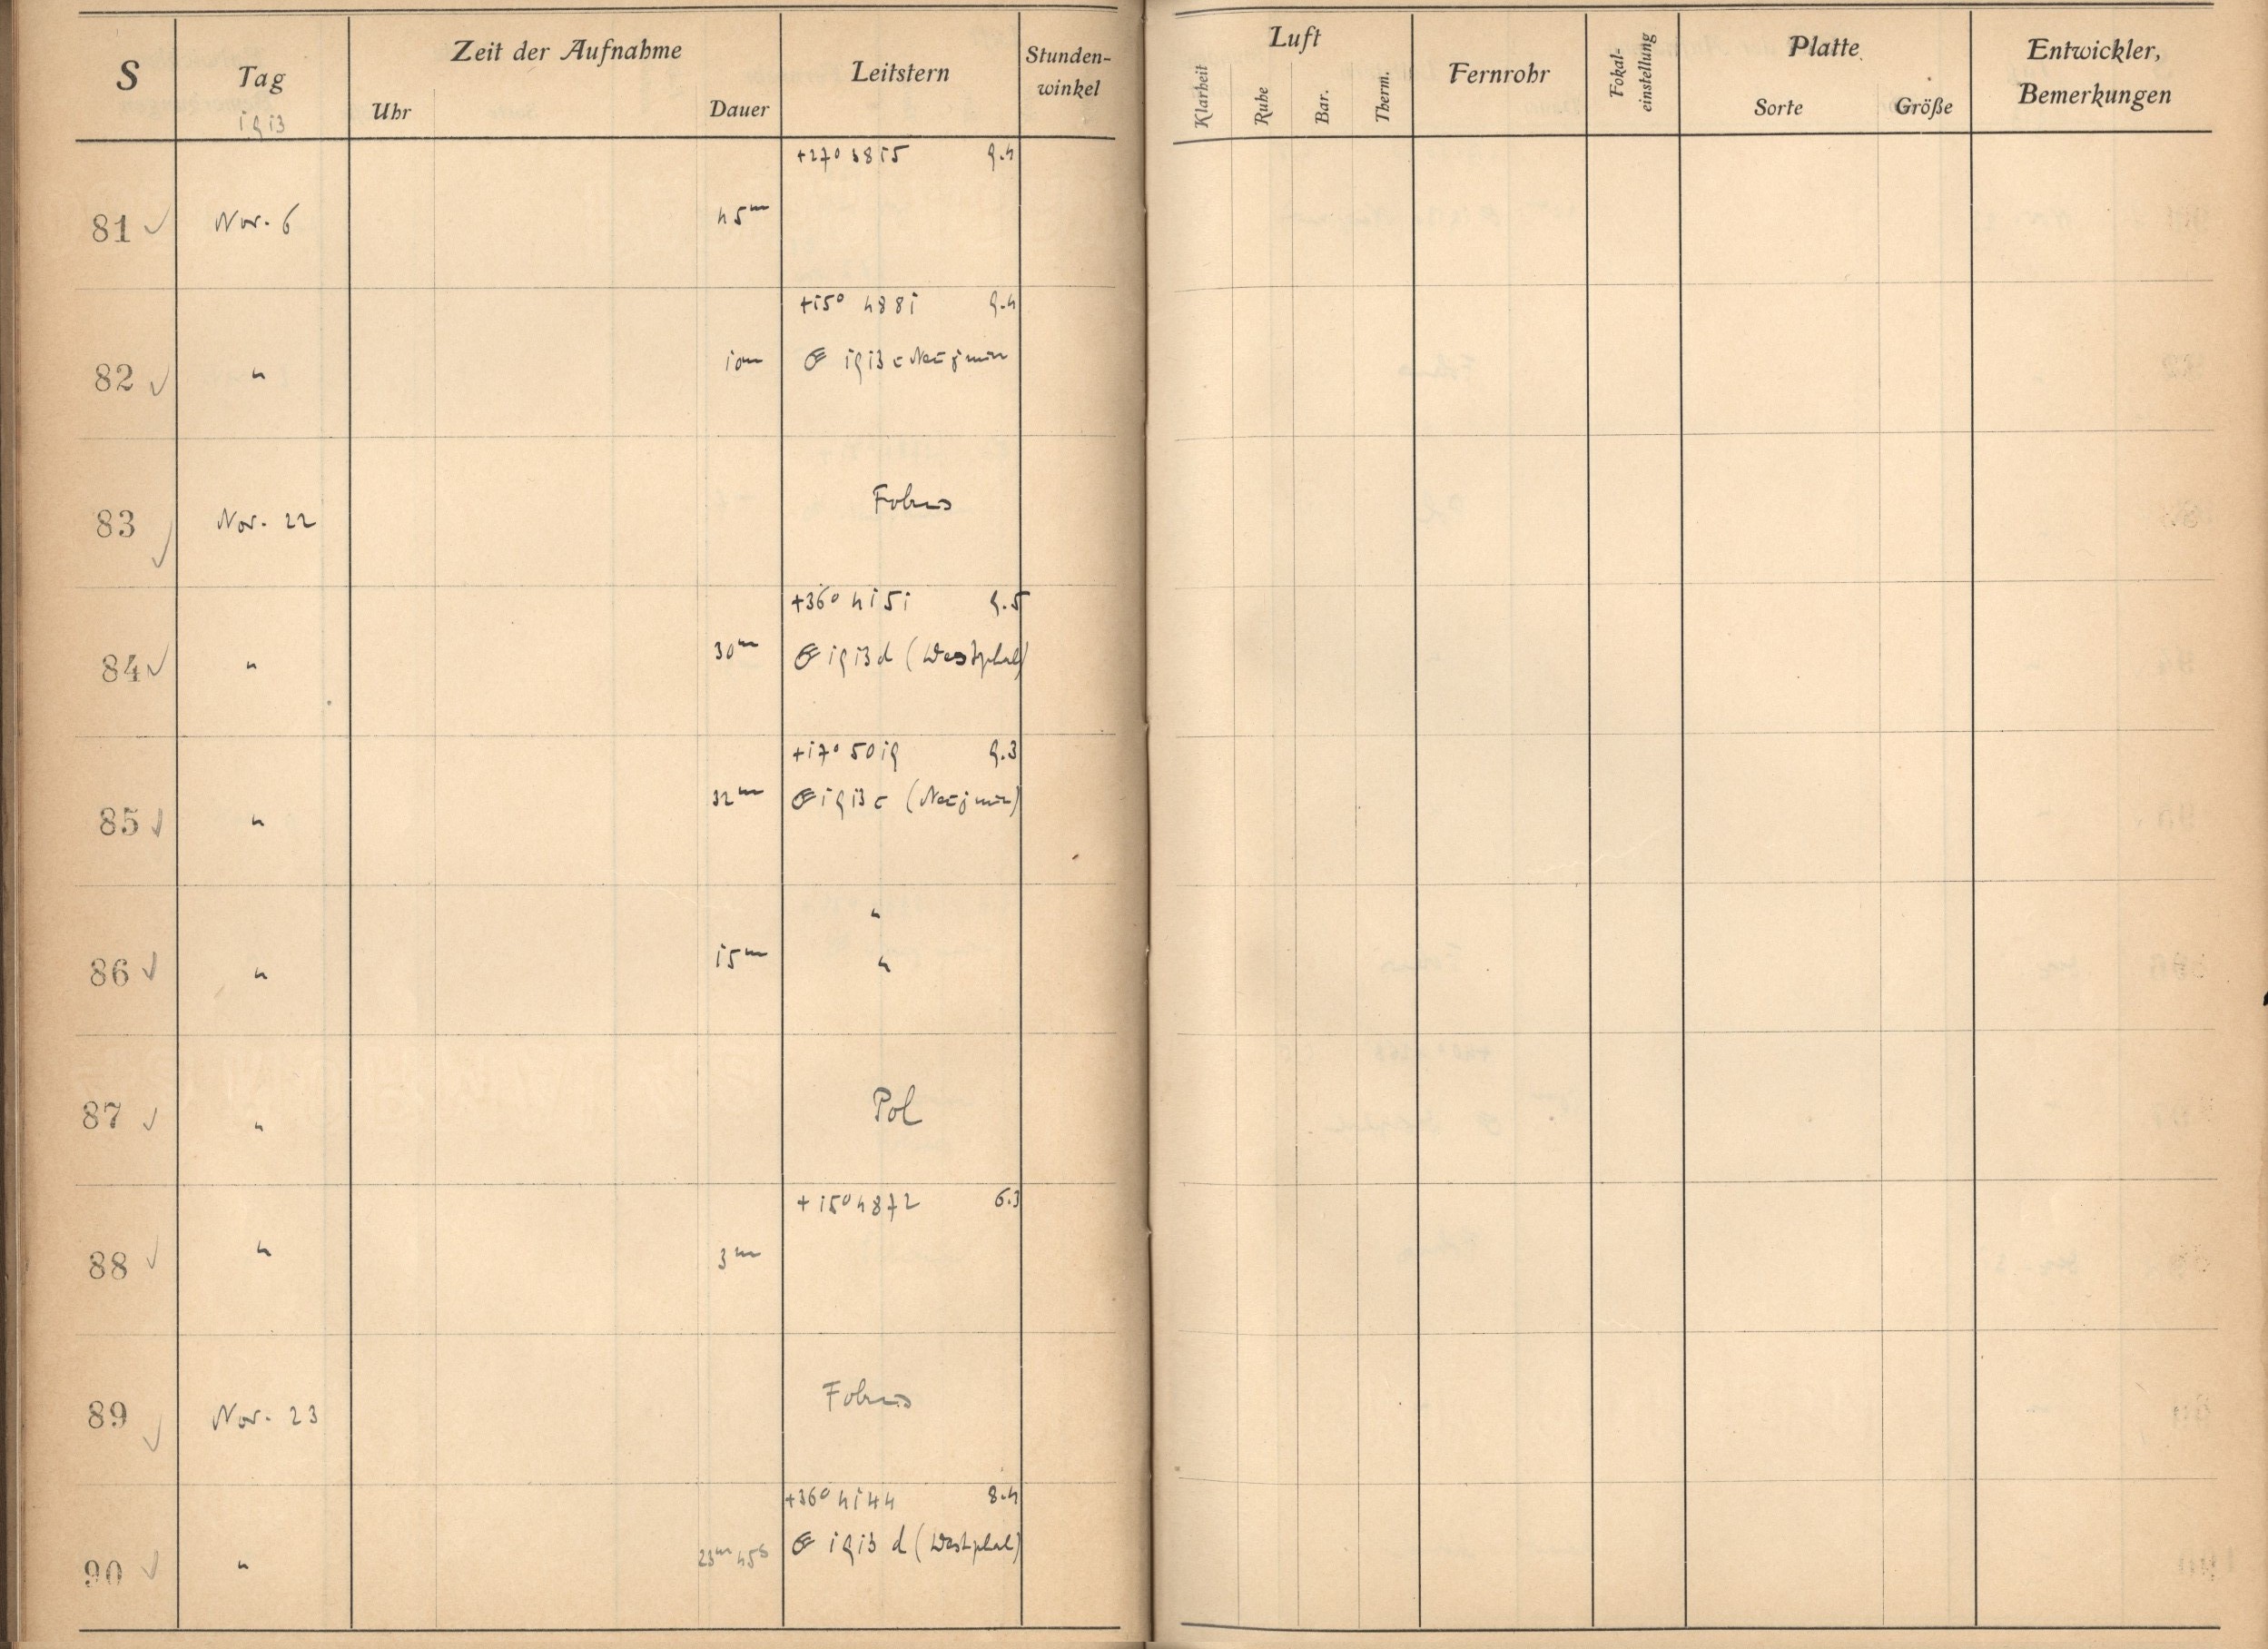 S Tag Zeit der Aufnahme Leitstern Stunden-
winkel
1913 Uhr Dauer
Luft Fernrohr Fokal-
einstellung Platte Entwickler,
Bemerkungen
Klarheit Ruhe Bar. Therm. Sorte Größe
+27° 3815 9.4
81 Nov. 6 45m
+15° 4881 9.4
82 " 10m ☄ 1913 c Neujmin
83 Nov. 22 Fokus
+36° 4151 9.5
84 " 30m ☄ 1913 d (Westphal)
+17° 5019 9.3
85 " 32m ☄ 1913 c (Neujmin)
"
86 " 15m "
87 " Pol
+15° 4872 6.3
88 " 3m
89 Nov. 23 Fokus
+36° 4144 8.4
90 " 23m 45s ☄ 1913 d (Westphal)